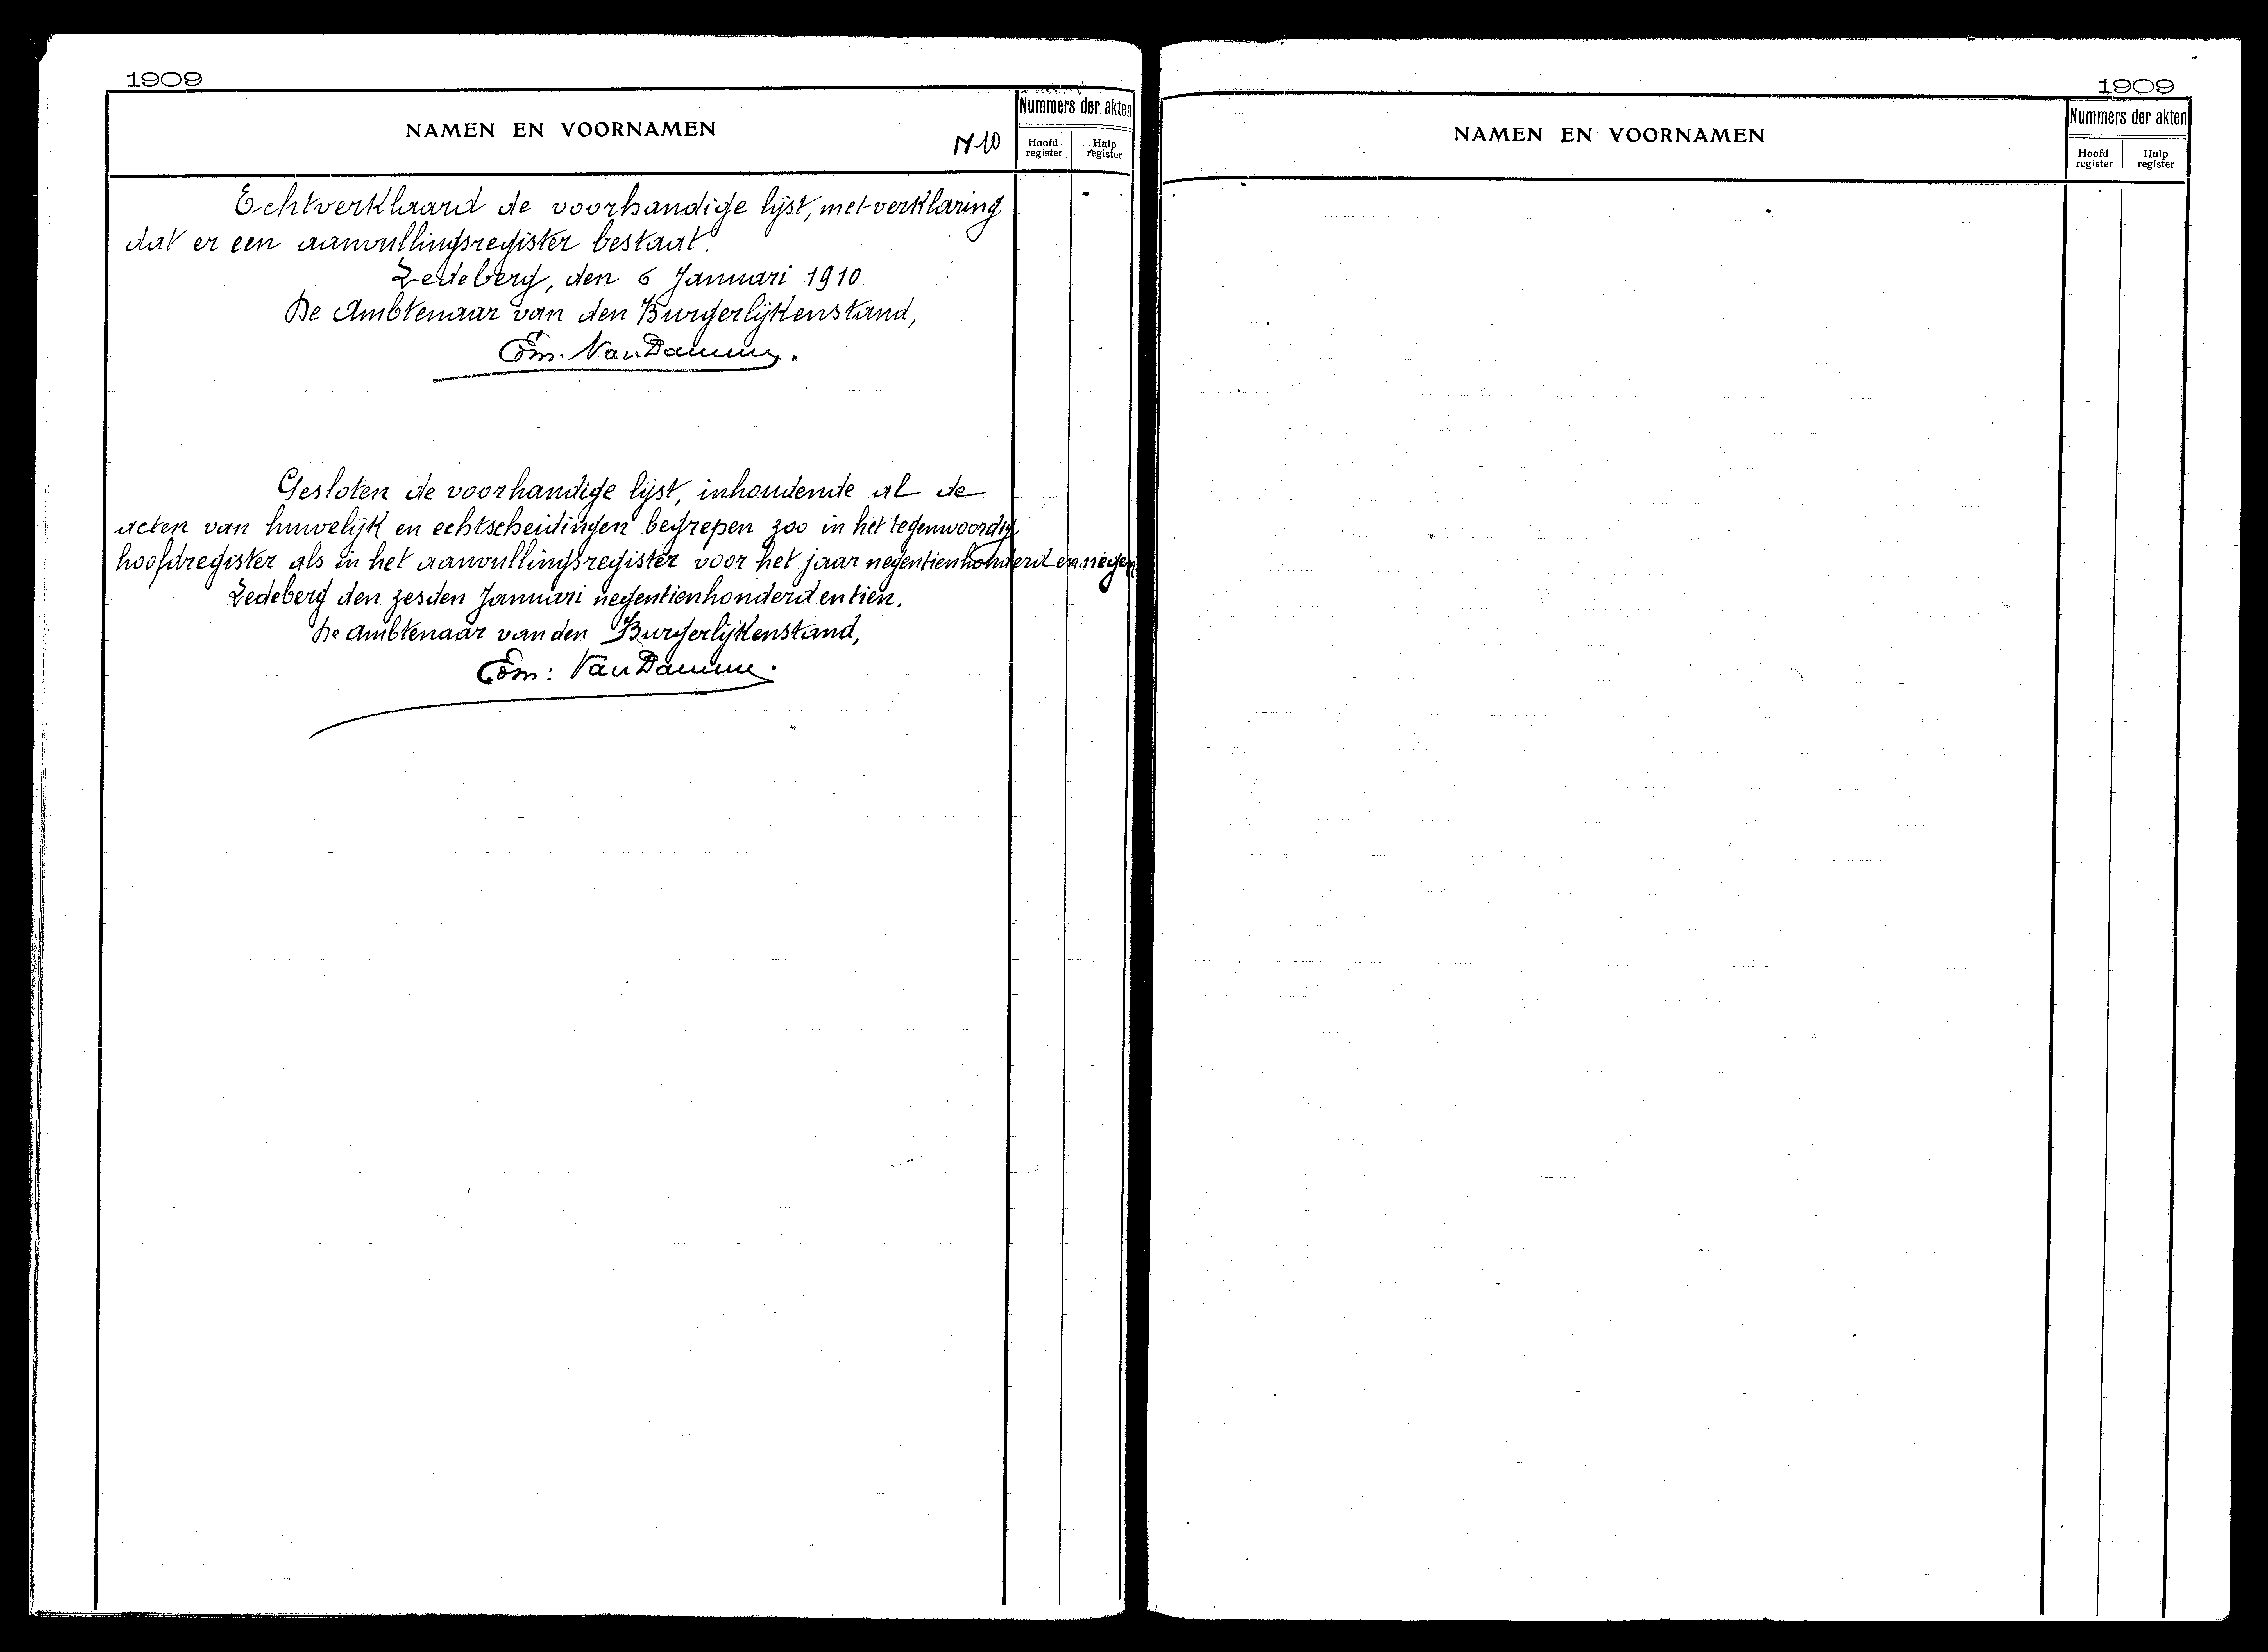 1909
NAMEN EN VOORNAMEN
Nummers der akten
Hoofd register
Hulp register
Echtverklaard de voorhandige lijst, met verklaring
dat er een aanvullingsregister bestaat.
Ledeberg, den 6 Januari 1910
De Ambtenaar van den Burgerlijkenstand,
Van Damme.
Gesloten de voorhandige lijst, inhoudende al de
acten van huwelijk en echtscheidingen begrepen zoo in het tegenwoordig
hoofdregister als in het aanvullingsregister voor het jaar negentienhonderd en negen
Ledeberg den zesden Januari negentienhonderd en tien.
De Ambtenaar van den Burgerlijkenstand,
Van Damme.
1909
NAMEN EN VOORNAMEN
Nummers der akten
Hoofd register
Hulp register